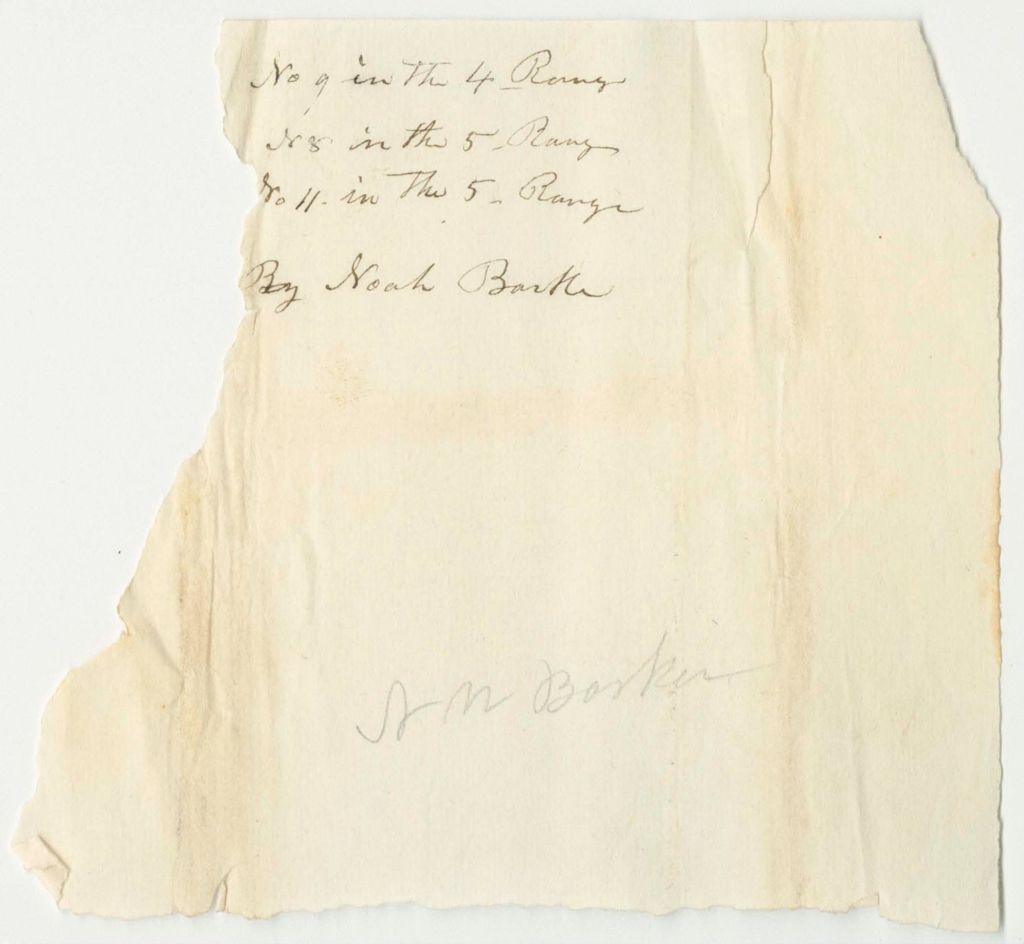 No 9 in the 4 Range
N 8 in the 5 Range
No 11. in the 5 - Range
By Noah Barker
N N Barker